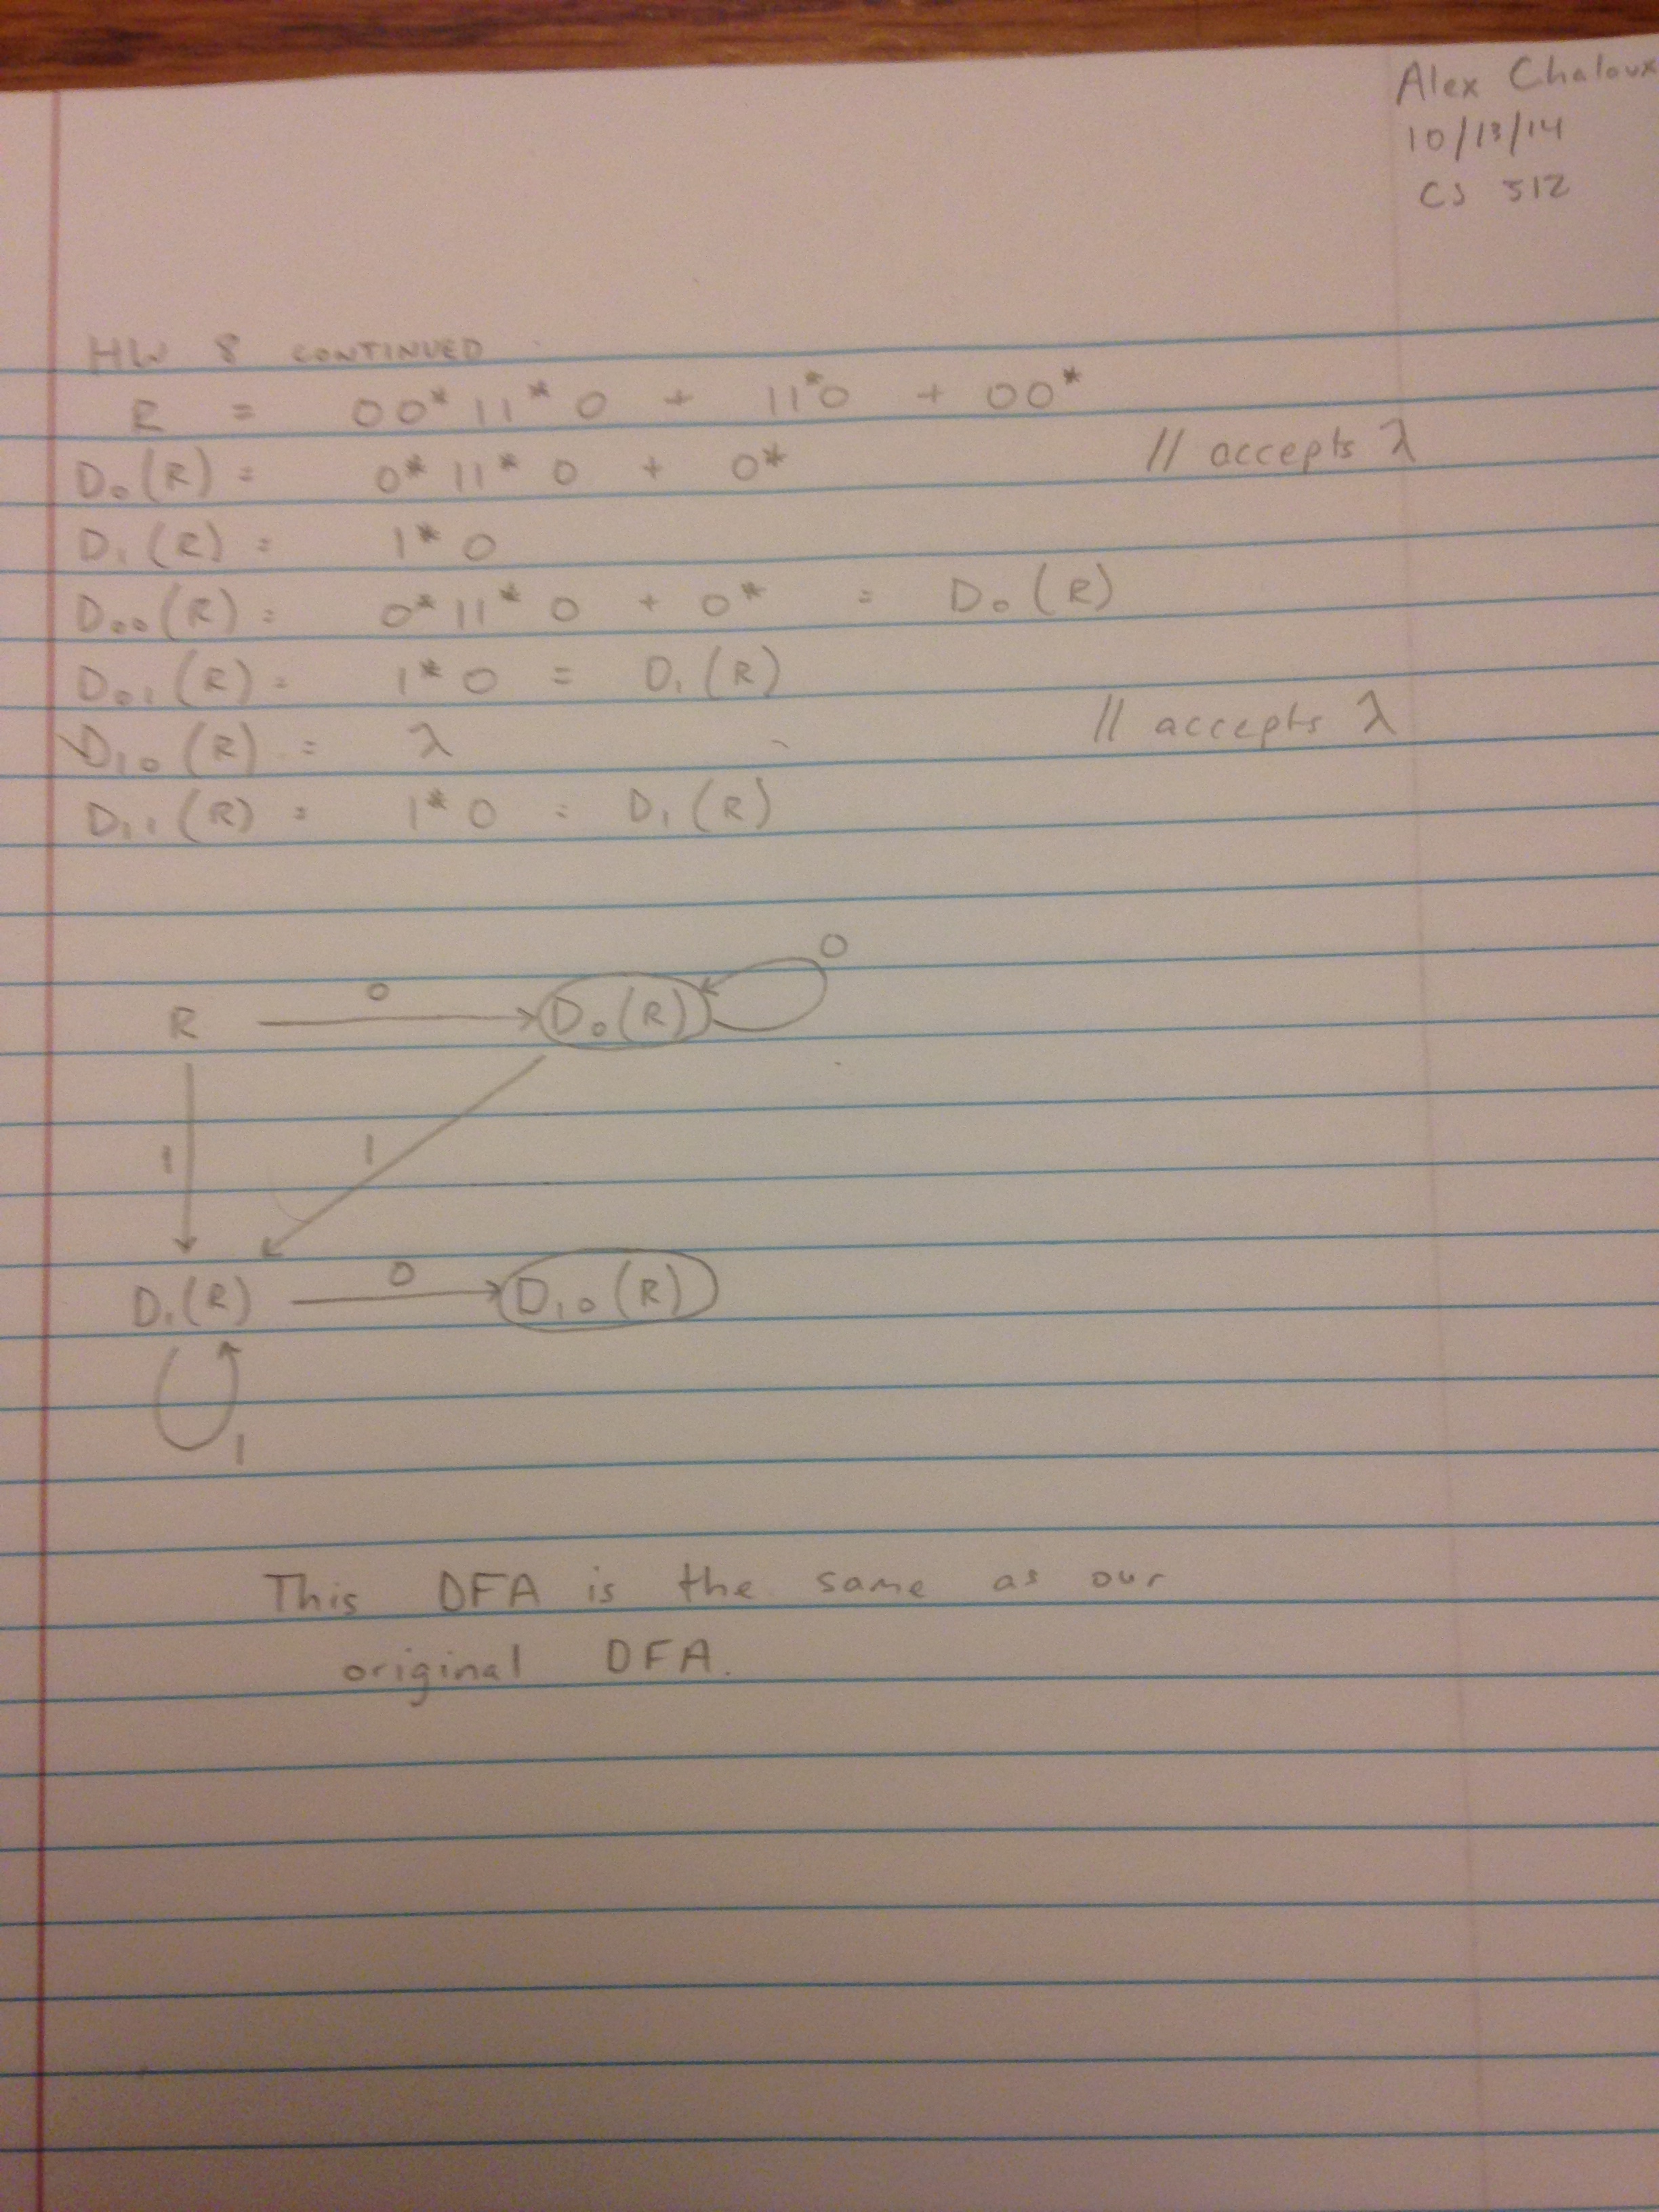 Alex Chaloux
10/13/14
CS 512
HW 8 CONTINUED
R = 00*11*0 + 11*0 + 00*
D₀(R) = 0*11*0 + 0* // accepts λ
D₁(R) = 1*0
D₀₀(R) = 0*11*0 + 0* = D₀(R)
D₀₁(R) = 1*0 = D₁(R)
D₁₀(R) = λ // accepts λ
D₁₁(R) = 1*0 = D₁(R)
0
R 0 D₀(R)
1 1
D₁(R) 0 D₁₀(R)
1
This DFA is the same as our
original DFA.